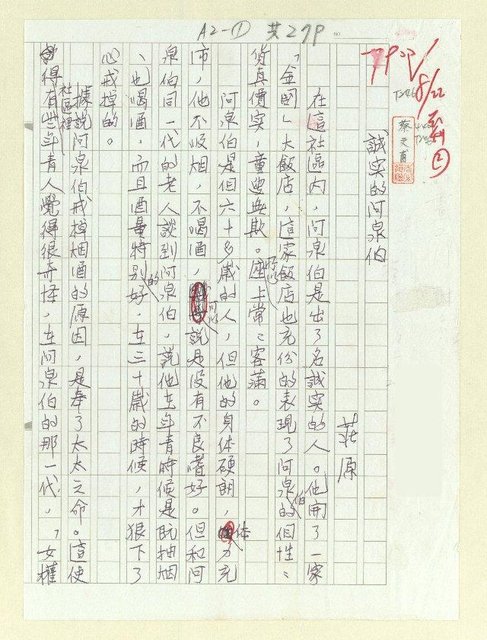 A2-① 共27P
8/22
②
誠实的阿泉伯
莊原
在這社區內，阿泉伯是出了名誠实的人。他開了一家
「金国」大飯店，這家飯店也充份的表現了阿泉伯的個性：
貨真價实，童叟無欺。所以店上常常客滿。
阿泉伯是個六十多歲的人，但他的身体硬朗，体力充
沛，他不吸烟，不喝酒，可以說是没有不良嗜好。但和阿
泉伯同一代的老人談到阿泉伯，說他在年青時候是既抽烟
、也喝酒，而且酒量特别的好，在三十歲的時候，才狠下了
心戒掉的。
據說阿泉伯戒掉烟酒的原因，是奉了太太之命。這使
得社區裡有些年青人覺得很奇怪，在阿泉伯的那一代，「女權